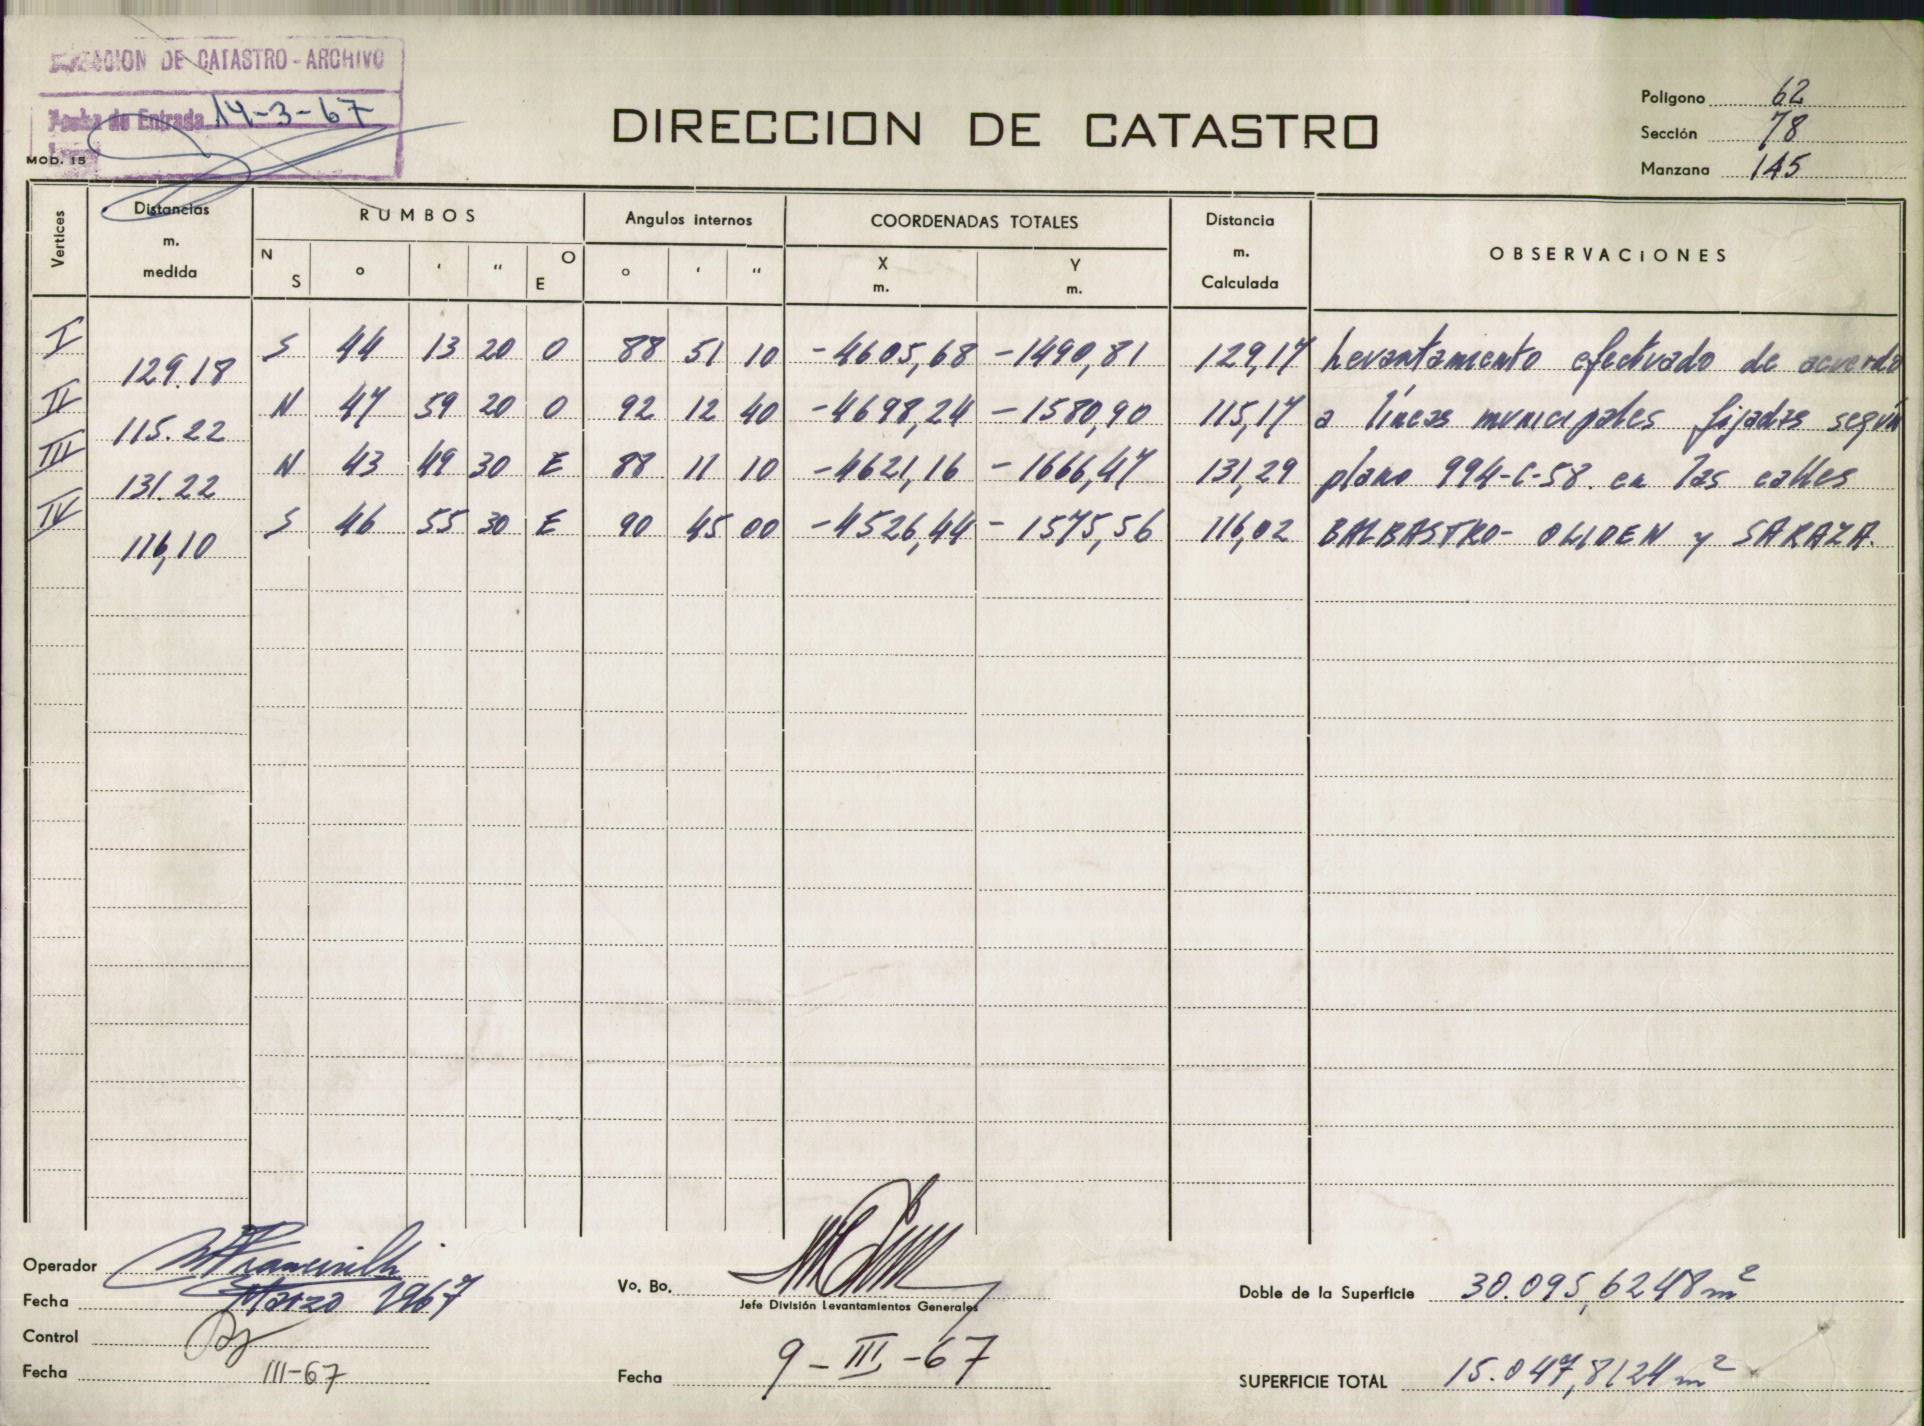 DIRECCION DE CATASTRO - ARCHIVO
Fecha de Entrada 14-3-67
MOD. 15
DIRECCION DE CATASTRO
Poligono 62
Sección 78
Manzana 145
Vertices Distancias m. medida RUMBOS Angulos internos COORDENADAS TOTALES Distancia m. Calculada OBSERVACIONES
N S ° ' " O E ° ' " X m. Y m.
I 129.18 S 44 13 20 O 88 51 10 -4605,68 -1490,81 129,17 Levantamiento efectuado de acuerdo
II 115.22 N 47 59 20 O 92 12 40 -4698,24 -1580,90 115,17 a líneas municipales fijadas según
III 131.22 N 43 49 30 E 88 11 10 -4621,16 -1666,47 131,29 plano 994-C-58. en las calles
IV 116,10 S 46 55 30 E 90 45 00 -4526,44 -1575,56 116,02 BALBASTRO- OLIDEN y SARAZA.
Operador
Fecha Marzo 1967
Control
Fecha III-67
Vo. Bo.
Jefe División Levantamientos Generales
Fecha 9-III-67
Doble de la Superficie 30.095,6248 m²
SUPERFICIE TOTAL 15.047,8124 m²